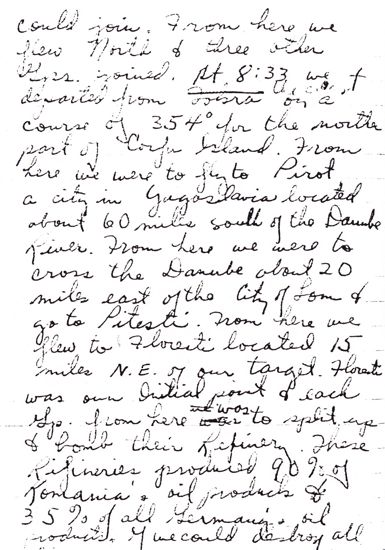 could join. From here we
flew North & three other
Grs. joined. At 8:33 we
departed from Tocra on a
course of 354° for the northern
part of Corfu Island. From
here we were to fly to Pirot
a city in Yugoslavia located
about 60 miles south of the Danube
River. From here we were to
cross the Danube about 20
miles east of the City of Lom &
go to Pitesti. From here we
flew to Floresti located 15
miles N.E. of our target. Floresti
was our Initial point & each
Gp. from here was to split up
& bomb their Refinery. These
Refineries produced 90% of
Romania's oil products &
35% of all Germany's oil
products. If we could destroy all